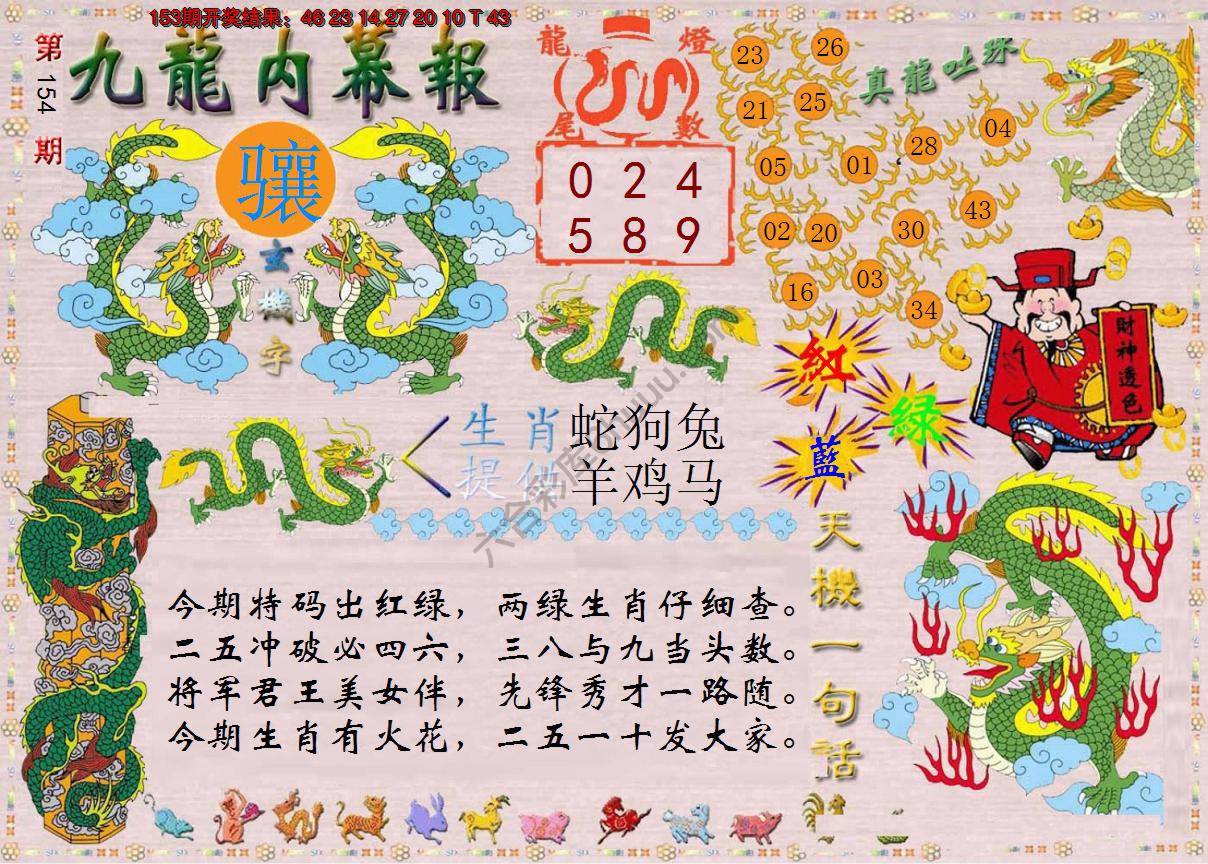 153期开奖结果：46 23 14 27 20 10 T 43
第154期
九龍内幕報
骧
玄機字
龍燈
尾數
0 2 4
5 8 9
真龍吐珠
23
26
21
25
05
01
28
04
02
20
30
43
16
03
34
財神透色
紅
绿
藍
生肖
提供
蛇狗兔
羊鸡马
今期特码出红绿，两绿生肖仔细查。
二五冲破必四六，三八与九当头数。
将军君王美女伴，先锋秀才一路随。
今期生肖有火花，二五一十发大家。
天機一句話